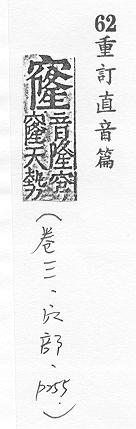 62重訂直音篇
窿音隆穹窿天勢
(卷三、穴部、p255.)